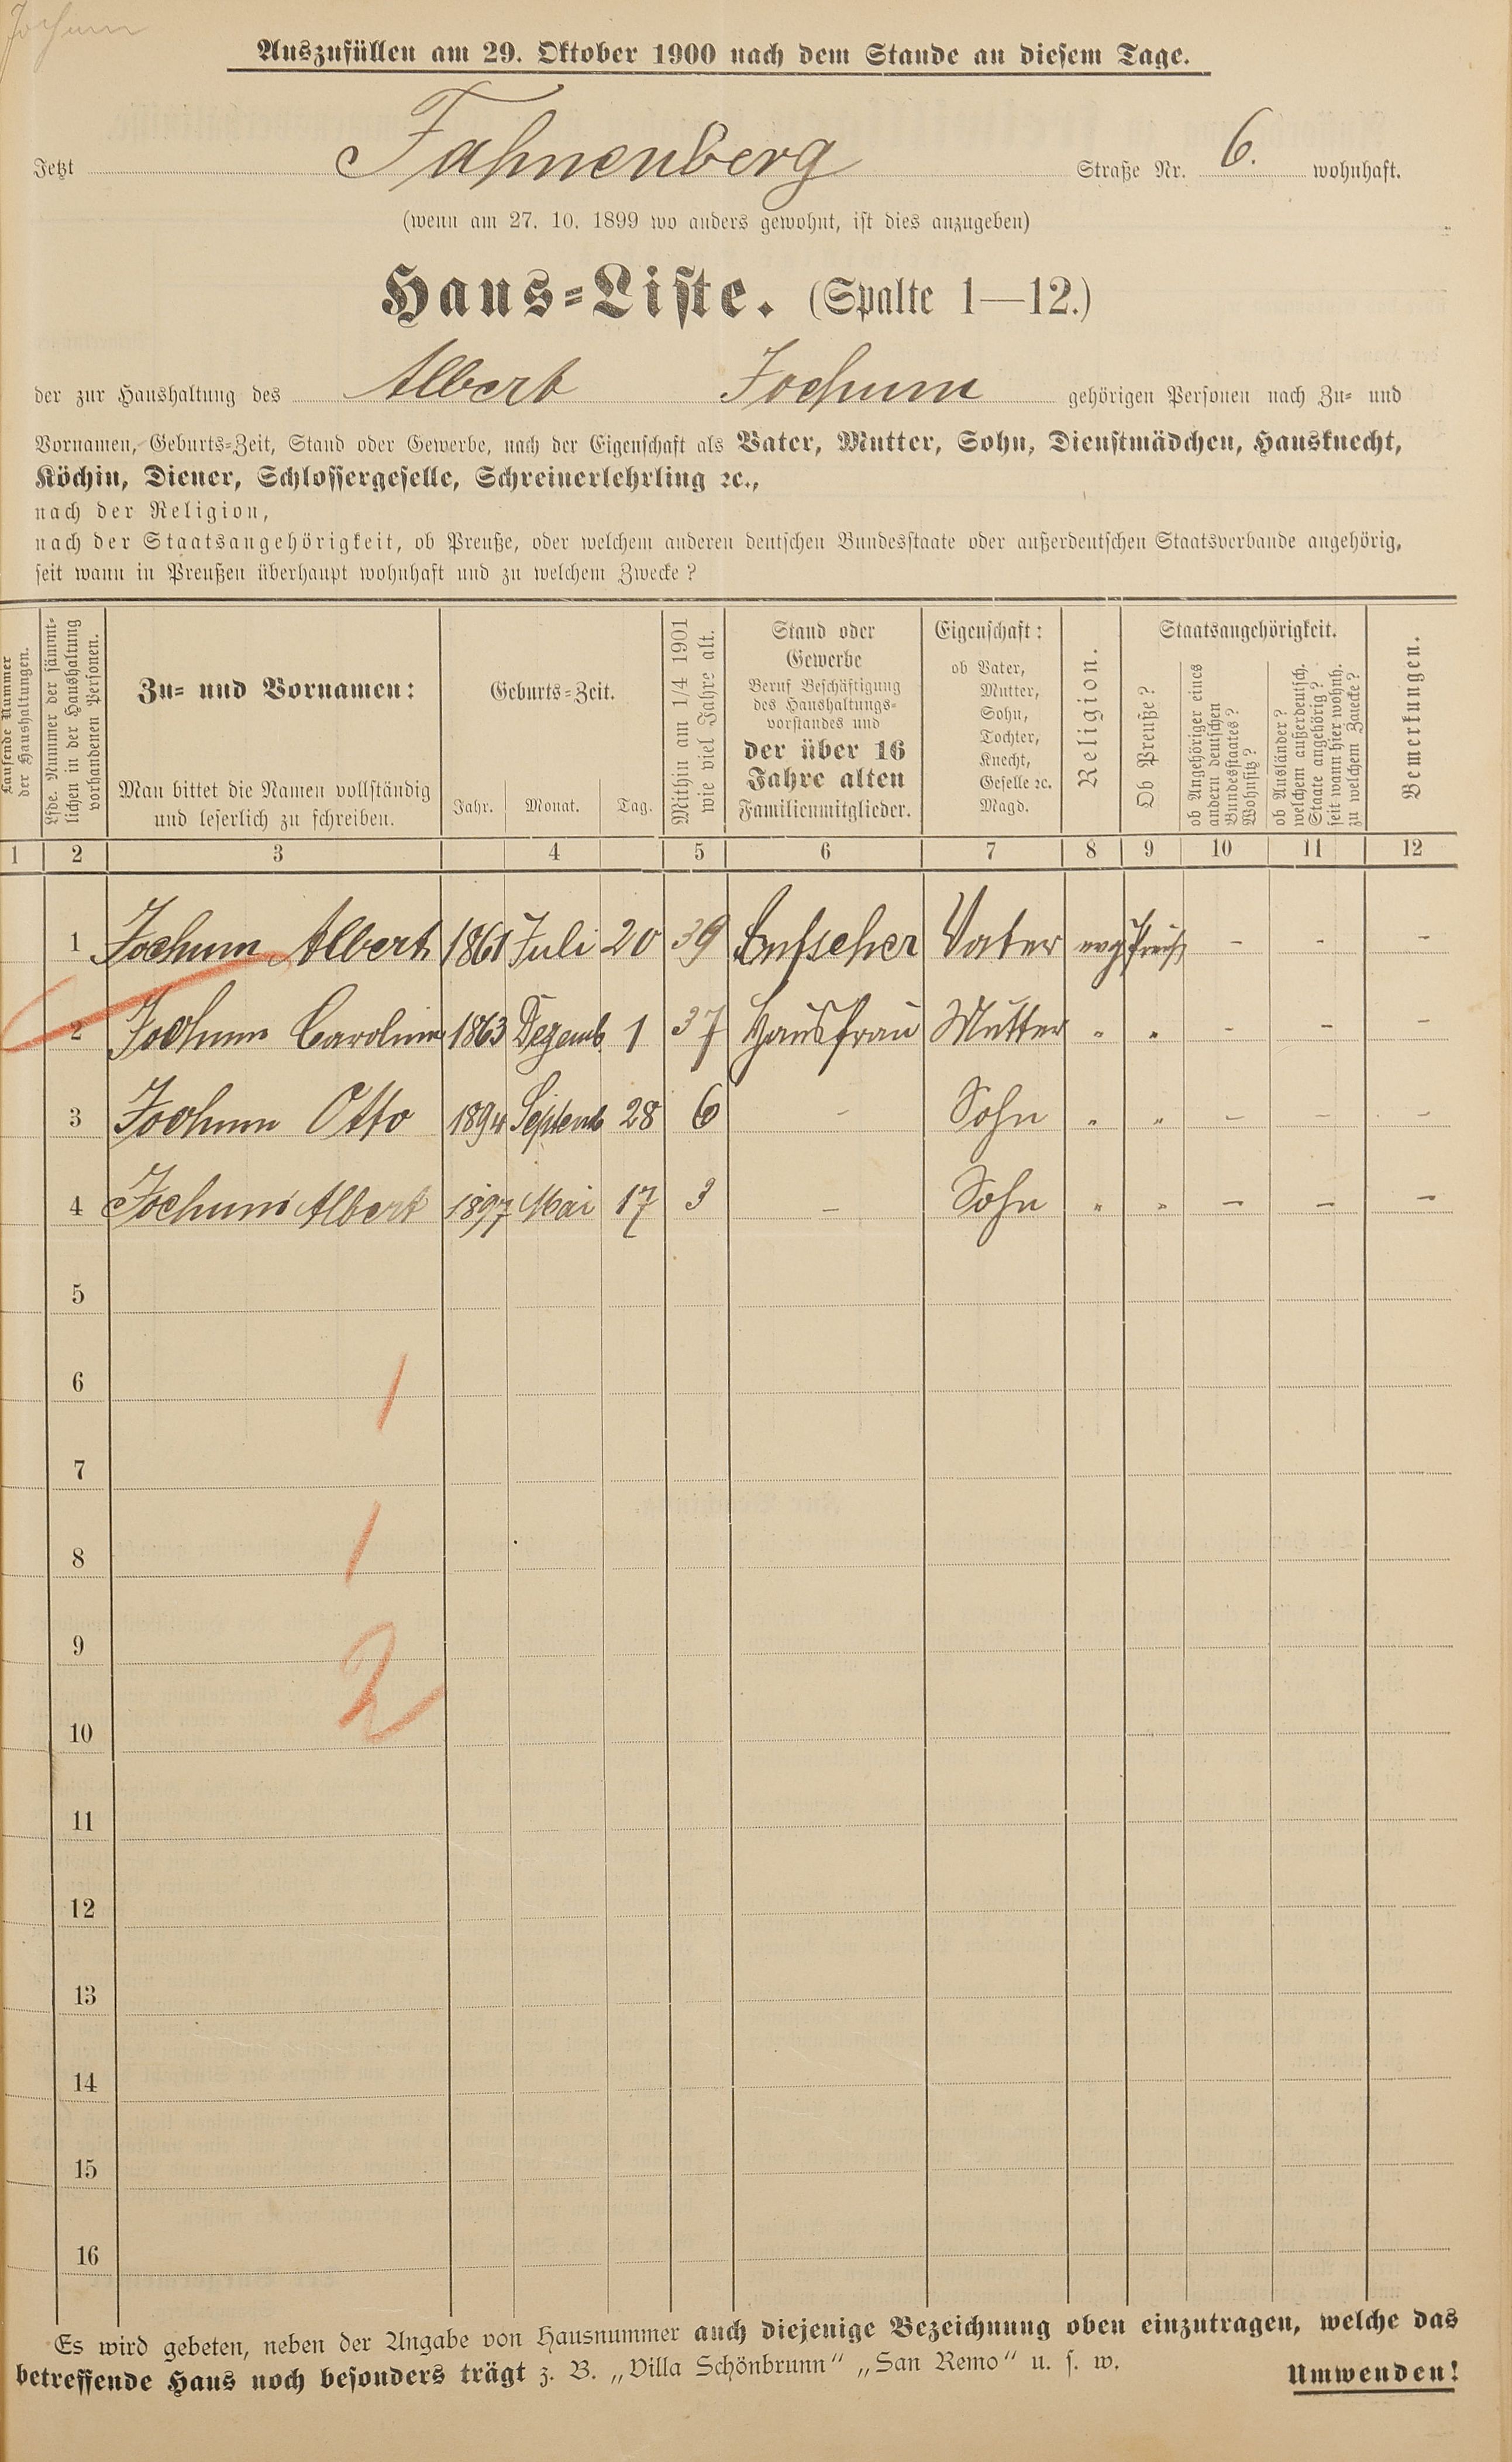 Jochum
Auszufüllen am 29. Oktober 1900 nach dem Stande an diesem Tage.
Jetzt Fahnenberg Straße Nr. 6. wohnhaft.
(wenn am 27. 10. 1899 wo anders gewohnt, ist dies anzugeben)
Haus-Liste. (Spalte 1—12.)
der zur Haushaltung des Albert Jochum gehörigen Personen nach Zu- und
Vornamen, Geburts-Zeit, Stand oder Gewerbe, nach der Eigenschaft als Vater, Mutter, Sohn, Dienstmädchen, Hausknecht,
Köchin, Diener, Schlossergeselle, Schreinerlehrling ꝛc.,
nach der Religion,
nach der Staatsangehörigkeit, ob Preuße, oder welchem anderen deutschen Bundesstaate oder außerdeutschen Staatsverbande angehörig,
seit wann in Preußen überhaupt wohnhaft und zu welchem Zwecke?
Laufende Nummer
der Haushaltungen.
Lfde. Nummer der sämmt-
lichen in der Haushaltung
vorhandenen Personen.
Zu- und Vornamen:
Man bittet die Namen vollständig
und leserlich zu schreiben.
Geburts-Zeit.
Jahr. Monat. Tag.
Mithin am 1/4 1901
wie viel Jahre alt.
Stand oder
Gewerbe
Beruf Beschäftigung
des Haushaltungs-
vorstandes und
der über 16
Jahre alten
Familienmitglieder.
Eigenschaft:
ob Vater,
Mutter,
Sohn,
Tochter,
Knecht,
Geselle ꝛc.
Magd.
Religion.
Staatsangehörigkeit.
Ob Preuße?
ob Angehöriger eines
andern deutschen
Bundesstaates?
Wohnsitz?
ob Ausländer?
welchem außerdeutsch.
Staate angehörig?
seit wann hier wohnh.
zu welchem Zwecke?
Bemerkungen.
1 2 3 4 5 6 7 8 9 10 11 12
1 Jochum Albert 1861 Juli 20 39 Kutscher Vater evg Preuß - - -
2 Jochum Caroline 1863 Dezemb. 1 37 Hausfrau Mutter " " - - -
3 Jochum Otto 1894 Septemb 28 6 - Sohn " " - - -
4 Jochum Albert 1897 Mai 17 3 - Sohn " " - - -
5
6 1
7
8 1
9
2
10
11
12
13
14
15
16
Es wird gebeten, neben der Angabe von Hausnummer auch diejenige Bezeichnung oben einzutragen, welche das
betreffende Haus noch besonders trägt z. B. „Villa Schönbrunn“ „San Remo“ u. s. w.
Umwenden!